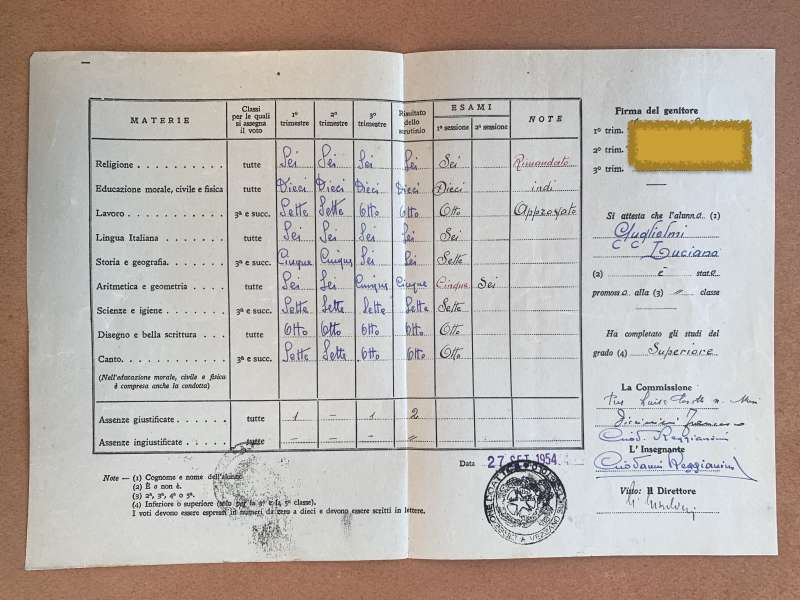 MATERIE Classi per le quali si assegna il voto 1º trimestre 2º trimestre 3º trimestre Risultato dello scrutinio ESAMI 1ª sessione 2ª sessione NOTE
Religione . . . . . . . . . . tutte Sei Sei Sei Sei Sei Rimandato
Educazione morale, civile e fisica tutte Dieci Dieci Dieci Dieci Dieci indi
Lavoro . . . . . . . . . . . 3ª e succ. Sette Sette Otto Otto Otto Approvato
Lingua Italiana . . . . . . . tutte Sei Sei Sei Sei Sei
Storia e geografia. . . . . . . 3ª e succ. Cinque Cinque Sei Sei Sette
Aritmetica e geometria . . . . . tutte Sei Sei Cinque Cinque Cinque Sei
Scienze e igiene . . . . . . . 3ª e succ. Sette Sette Sette Sette Sette
Disegno e bella scrittura . . . tutte Otto Otto Otto Otto Otto
Canto. . . . . . . . . . . . 3ª e succ. Sette Sette Otto Otto Otto
(Nell'educazione morale, civile e fisica
è compresa anche la condotta)
Assenze giustificate . . . . . tutte 1 – 1 2
Assenze ingiustificate . . . . . tutte – – – "
Data 27 SET. 1954
Note — (1) Cognome e nome dell'alunno.
(2) È o non è.
(3) 2ª, 3ª, 4ª o 5ª.
(4) Inferiore o superiore (solo per la 3ª e la 5ª classe).
I voti devono essere espressi in numeri da zero a dieci e devono essere scritti in lettere.
Firma del genitore
1º trim.
2º trim.
3º trim.
Si attesta che l'alunna (1)
Guglielmi
Luciana
(2) è stata
promossa alla (3) " classe
Ha completato gli studi del
grado (4) Superiore
La Commissione
Reggianini
L'Insegnante
Reggianini
Visto: Il Direttore